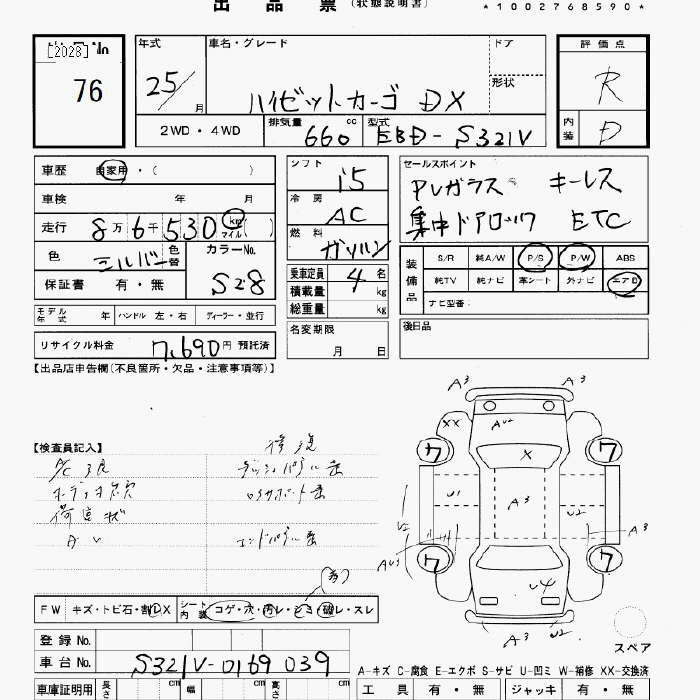 出品票 (状態説明書)
*1002768590*
[2028]
76
年式 車名・グレード ドア
25/ 月 ハイゼットカーゴ DX 形状
2WD・4WD 排気量 660 cc 型式 EBD-S321V
評価点
R
内装 D
車歴 自家用・( )
車検 年 月
走行 8万6千530 km マイル ( )
色 シルバー 色替 カラーNo.
保証書 有・無 S28
シフト i5
冷房 AC
燃料 ガソリン
乗車定員 4 名
積載量 kg
総重量 kg
セールスポイント
PVガラス キーレス
集中ドアロック ETC
装備品
S/R 純A/W P/S P/W ABS
純TV 純ナビ 革シート 外ナビ エアB
ナビ型番:
モデル年式 年 ハンドル 左・右 ディーラー・並行
リサイクル料金 7,690円 預託済
名変期限
月 日
後日品
【出品店申告欄(不良箇所・欠品・注意事項等)】
A3 A3
XX AU2
ワ ワ
X
【検査員記入】 修復
A/C不良
オーディオ欠
荷室
A U
U1 A3 U2
U2 A3
ワ ワ
U4
A3 U2
FW キズ・トビ石・割レX シート内装 コゲ・穴・汚レ・シミ・破レ・スレ
登録No.
車台No. S321V-0169039
スペア
A-キズ C-腐食 E-エクボ S-サビ U-凹ミ W-補修 XX-交換済
車庫証明用 長さ cm 幅 cm 高さ cm
工具 有・無 ジャッキ 有・無